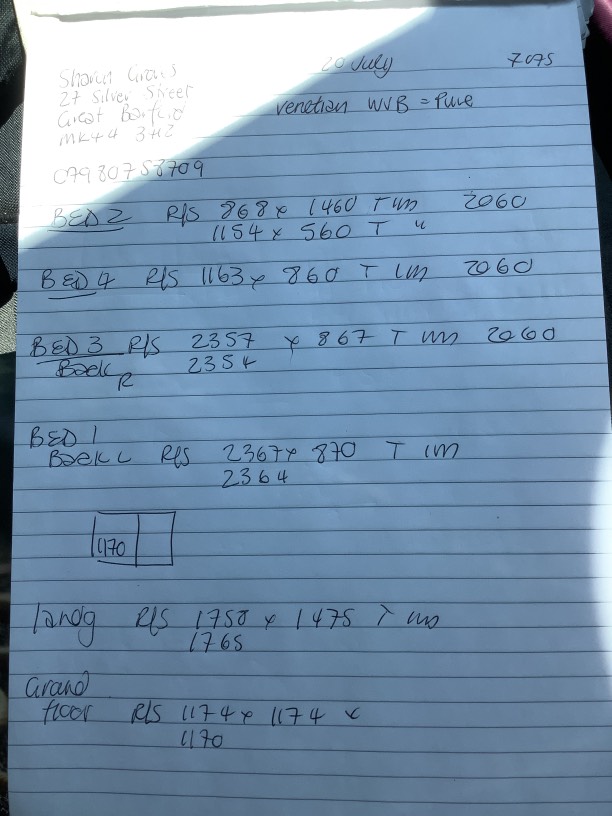 20 July 7095
27 Silver Street
Great Barford
MK44 3HZ
Venetian WVB = Pure
07980758709
BED 2 R/S 868 x 1460 T
2060
1154 x 560 T "
BED 4 R/S 1163 x 860 T 2060
BED 3 R/S 2357 x 867 T 2060
Back R 2354
BED 1
Back L R/S 2367 x 870 T
2364
1170
landg R/S 1758 x 1475 T
1765
Grand
floor R/S 1174 x 1174 x
1170